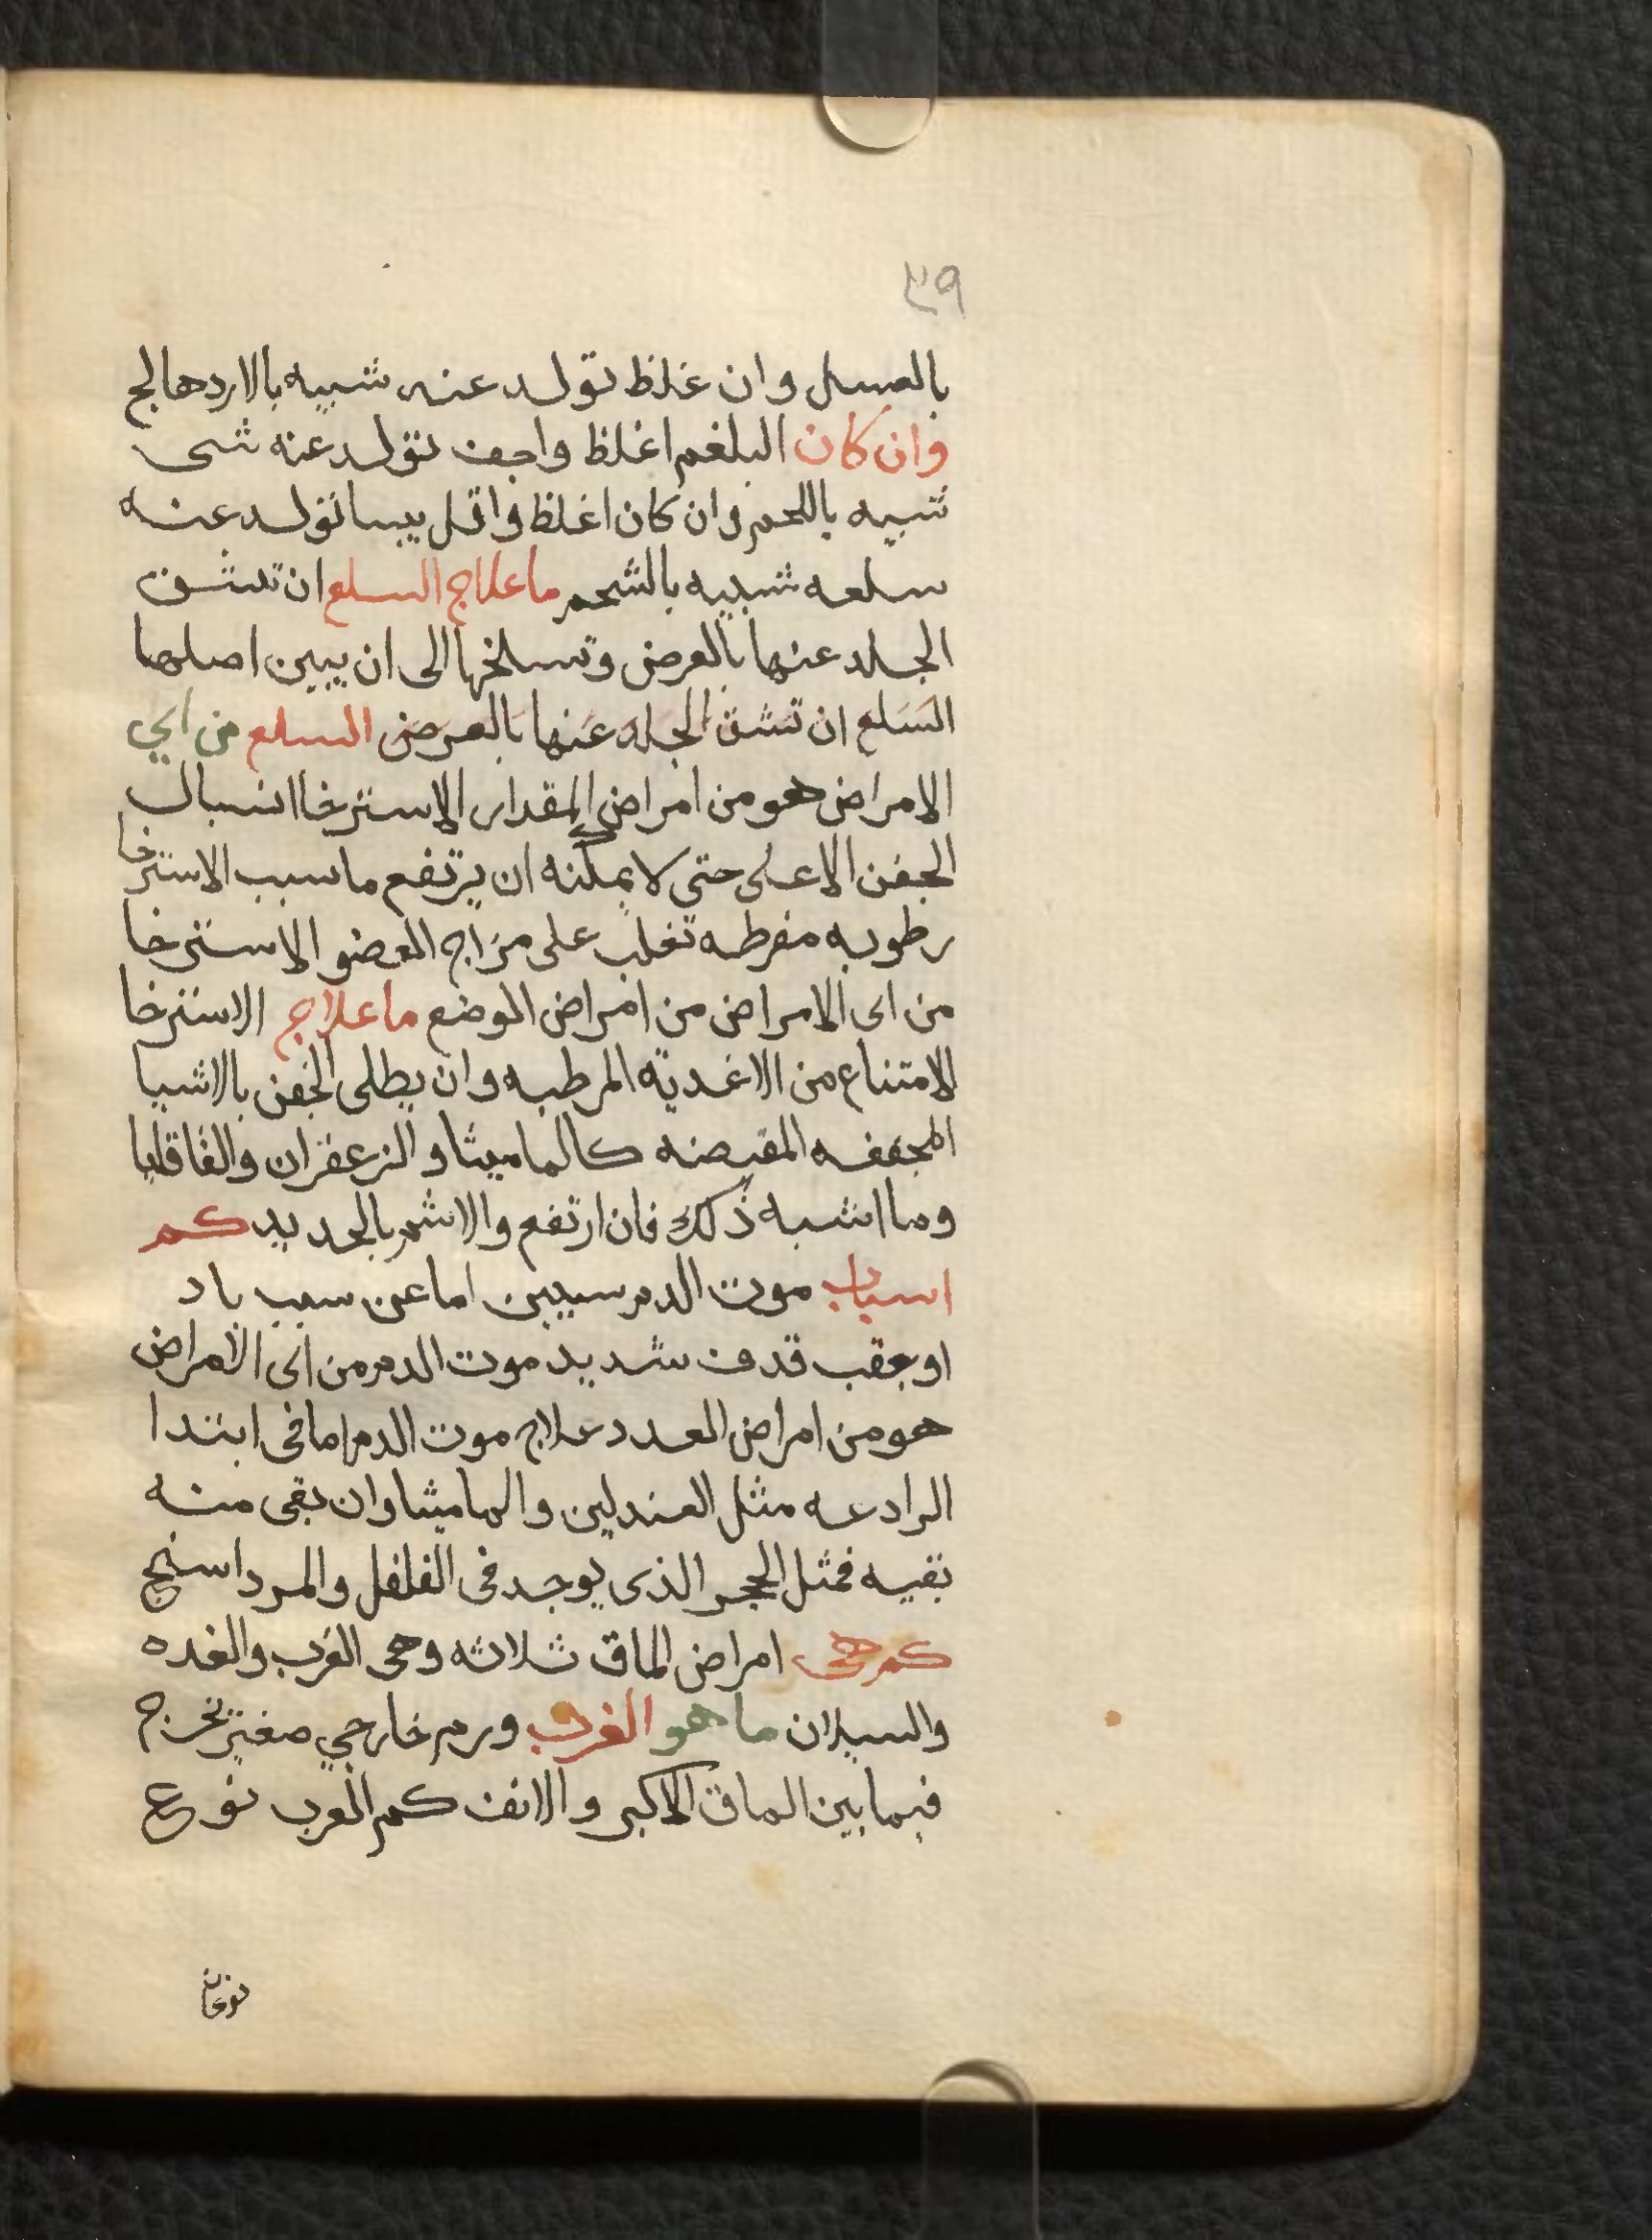 ٣٩
بالعسل وان غلظ تولد عنه شبيه بالاردهالج
وان كان البلغم اغلظ واجف تولد عنه شى
شبيه باللحم وان كان اغلظ واقل يبسا تولد عنه
سلعه شبيه بالشحم ما علاج السلع ان تشق
الجلد عنها بالعرض وتسلخها الى ان يبين اصلها
السلع ان تشق الجلد عنها بالعرض السلع من اي
الامراض هو من امراض المقدار الاسترخا انسبال
الجفن الاعلى حتى لا يمكنه ان يرتفع ما سبب الاسترخا
رطوبه مفرطه تغلب على مزاج العضو الاسترخا
من اى الامراض من امراض الموضع ما علاج الاسترخا
الامتناع من الاغديه المرطبه وان يطلى الجفن بالاشيا
المجففه المقبضه كالماميثا والزعفران والقاقليا
وما اشبه ذلك فان ارتفع والا شمر بالحديد كم
اسباب موت الدم سببين اما عن سبب باد
او بعقب قدف شديد موت الدم من اى الامراض
هو من امراض العدد علاج موت الدم اما فى ابتدا
الرادعه مثل الصندلين والماميثا وان بقى منه
بقيه فمثل الحجر الذى يوجد فى الفلفل والمرداسنج
كم هى امراض الماق ثلاثه وهى الغرب والغده
والسيلان ما هو الغرب ورم خارجي صغير يخرج
فيما بين الماق الاكبر والانف كم الغرب نوع
نوعان